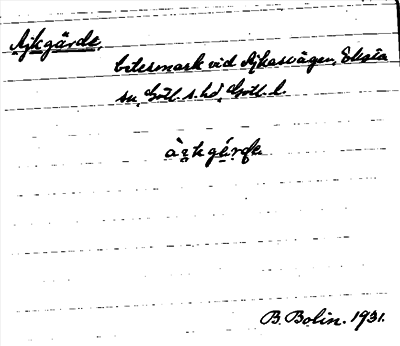 Ajkgärde,
betesmark vid Ajkesvägen, Eksta
sn, Gotl. s. hd, Gotl. l.
B. Bolin. 1931.